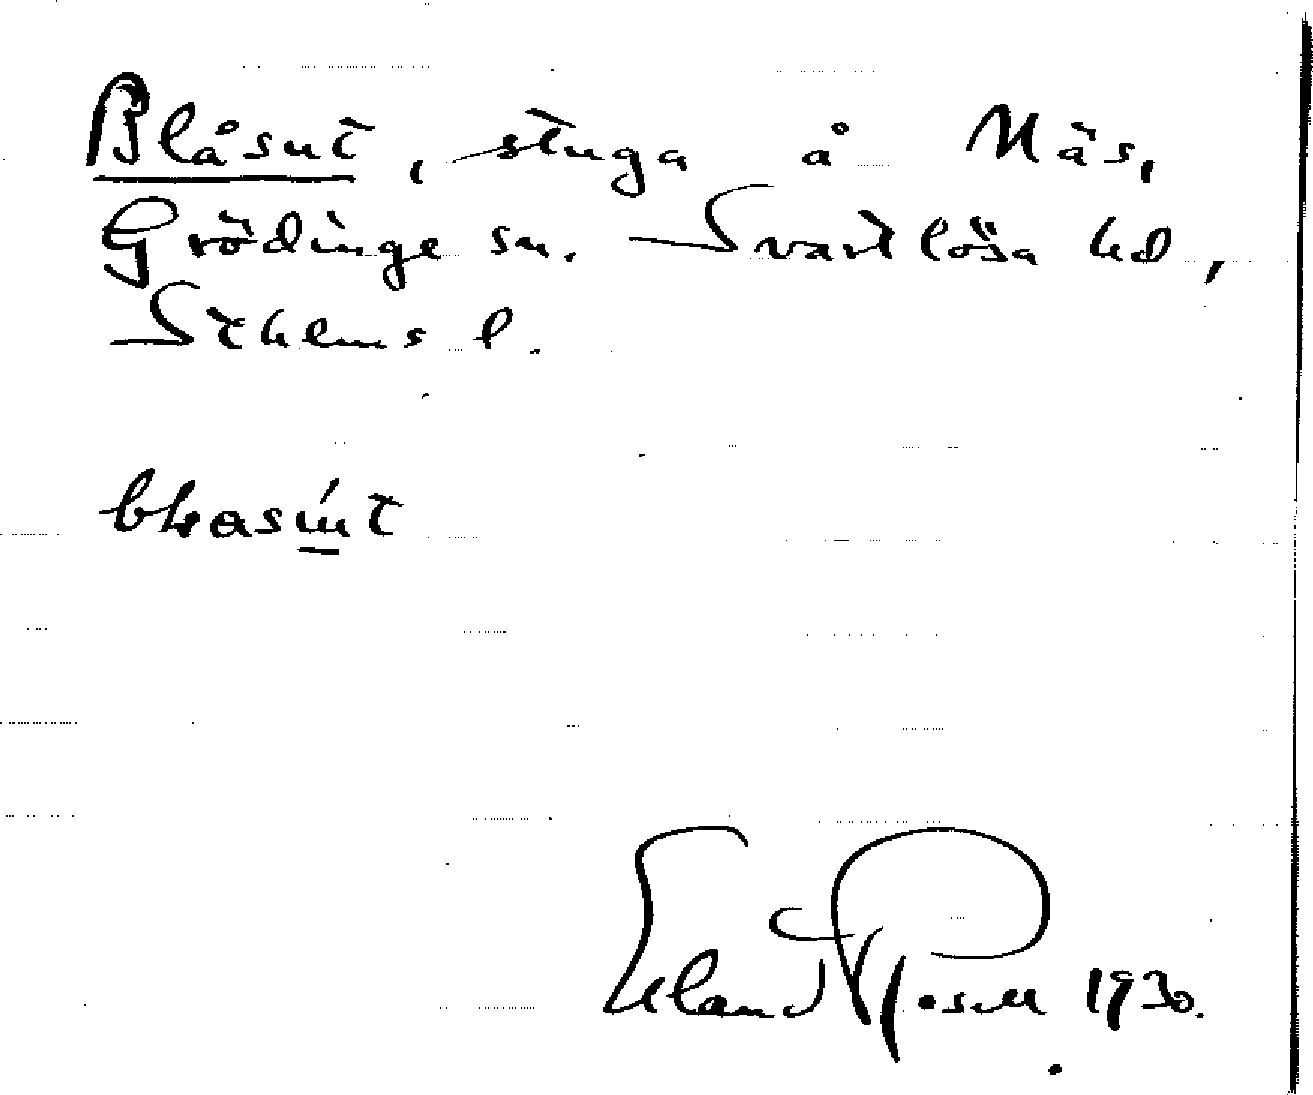 Blåsut, stuga å Näs,
Grödinge sn. Svartlösa hd,
Sthlms l.
Erland Rosell 1930.